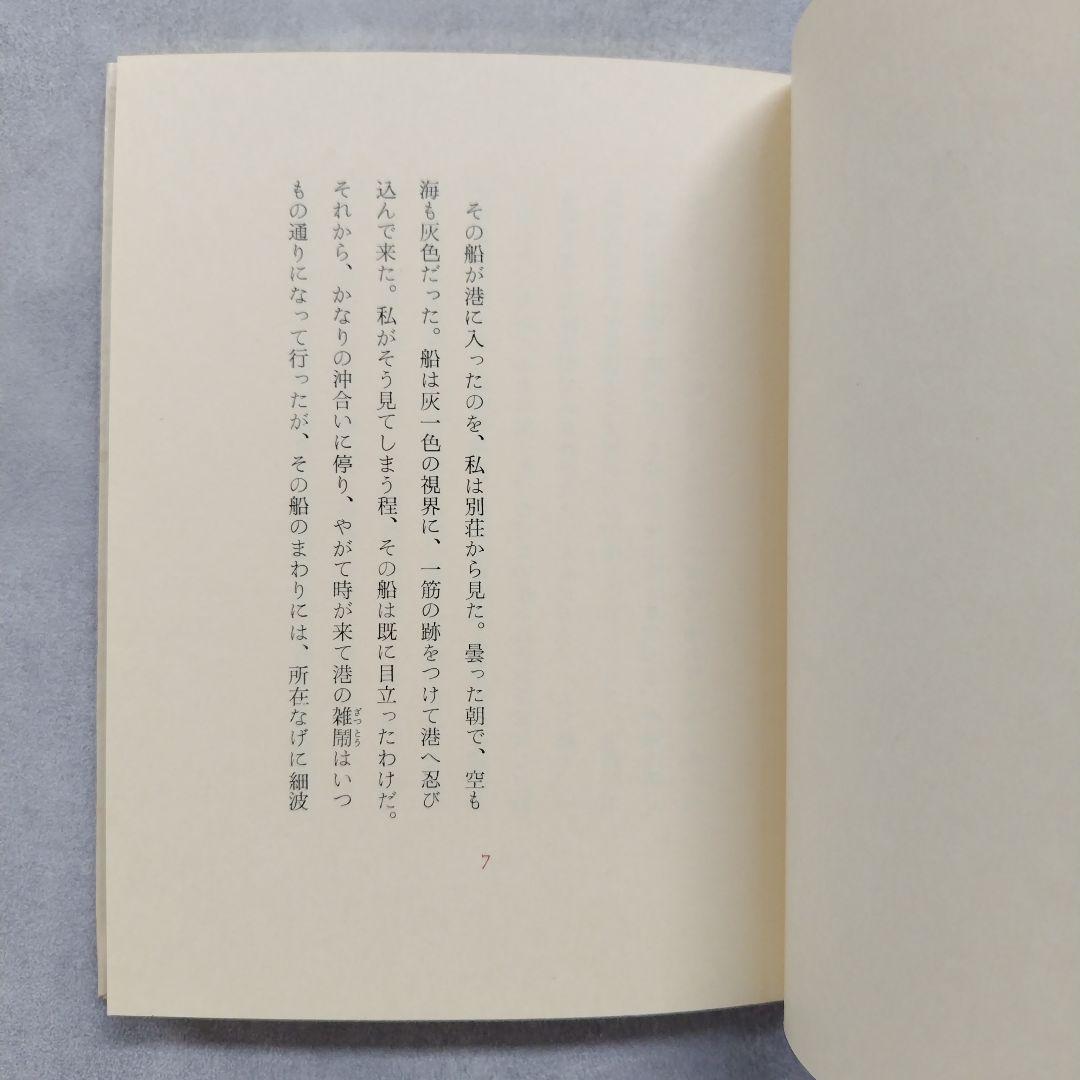 その船が港に入ったのを、私は別荘から見た。曇った朝で、空も
海も灰色だった。船は灰一色の視界に、一筋の跡をつけて港へ忍び
込んで来た。私がそう見てしまう程、その船は既に目立ったわけだ。
それから、かなりの沖合いに停り、やがて時が来て港の雑鬧はいつ
ざっとう
もの通りになって行ったが、その船のまわりには、所在なげに細波
7